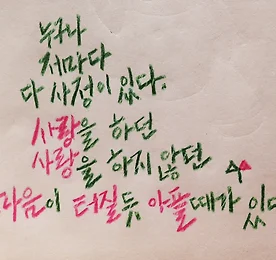 누구나
저마다
다 사정이 있다.
사랑을 하던
사랑을 하지 않던
마음이 터질듯 아플때가 있다